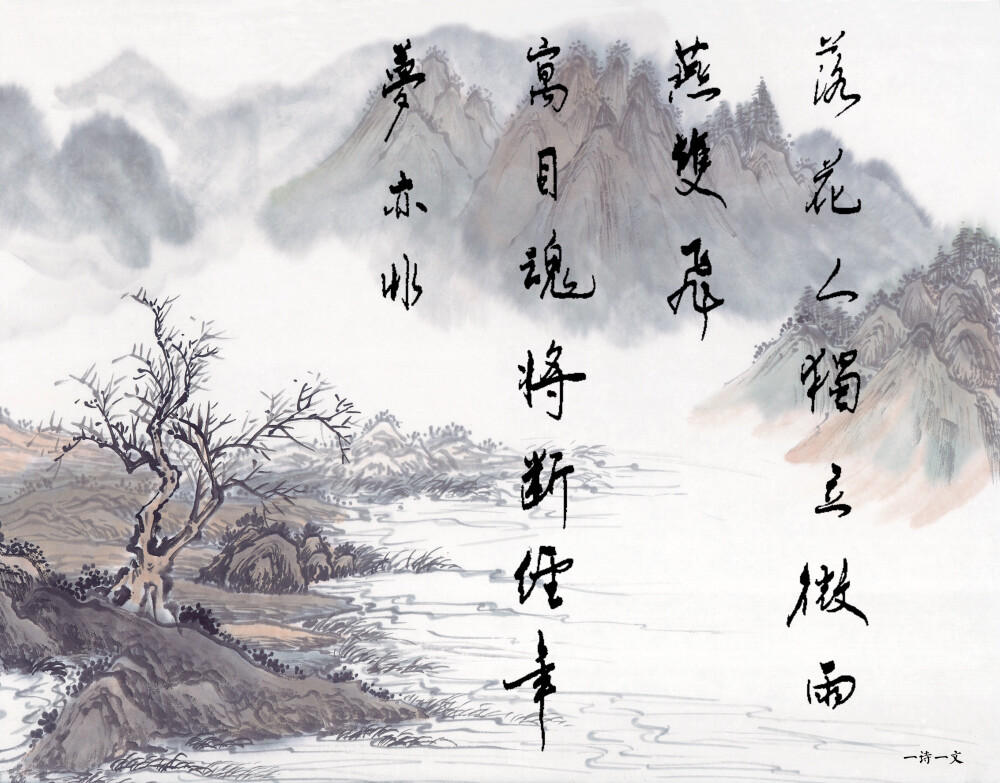 落花人獨立微雨
燕雙飛
寓目魂將斷經年
夢亦非
一诗一文